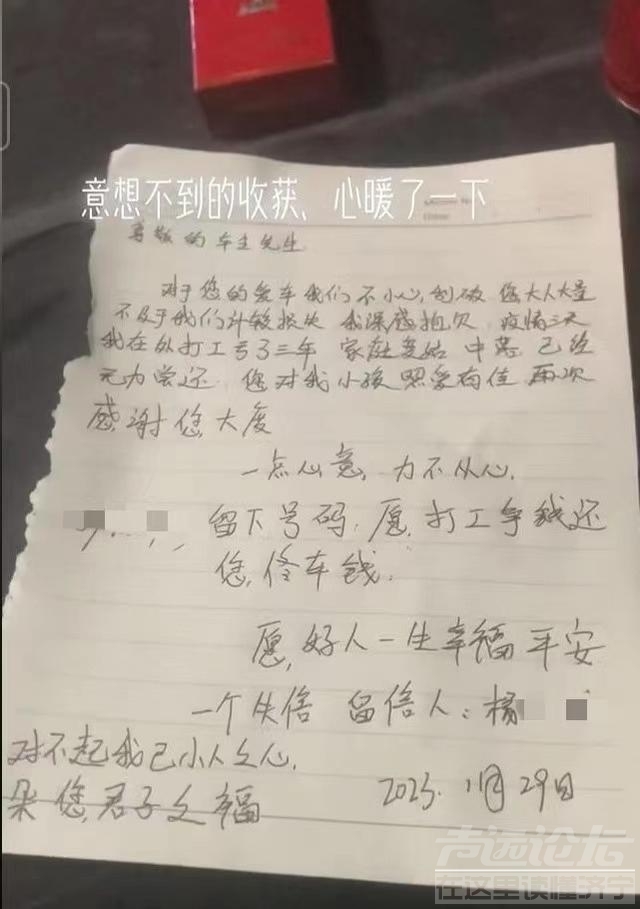 意想不到的收获、心暖了一下
尊敬的车主先生
对于您的爱车我们不小心,刮破 您大人大量
不及于我们计较损失 我深感抱欠 疫情三天
我在外打工亏了三年 家庭 中落 已经
无力尝还 您对我小孩照爱有佳 再次
感谢您大度
一点心意,力不从心,
留下号码,愿,打工争钱还
您,修车钱.
愿,好人一生幸福平安
一个失信 留信人:杨
对不起我已小人之心,
朵您,君子之福
2023. 11月29日
声远论坛
在这里读懂济宁